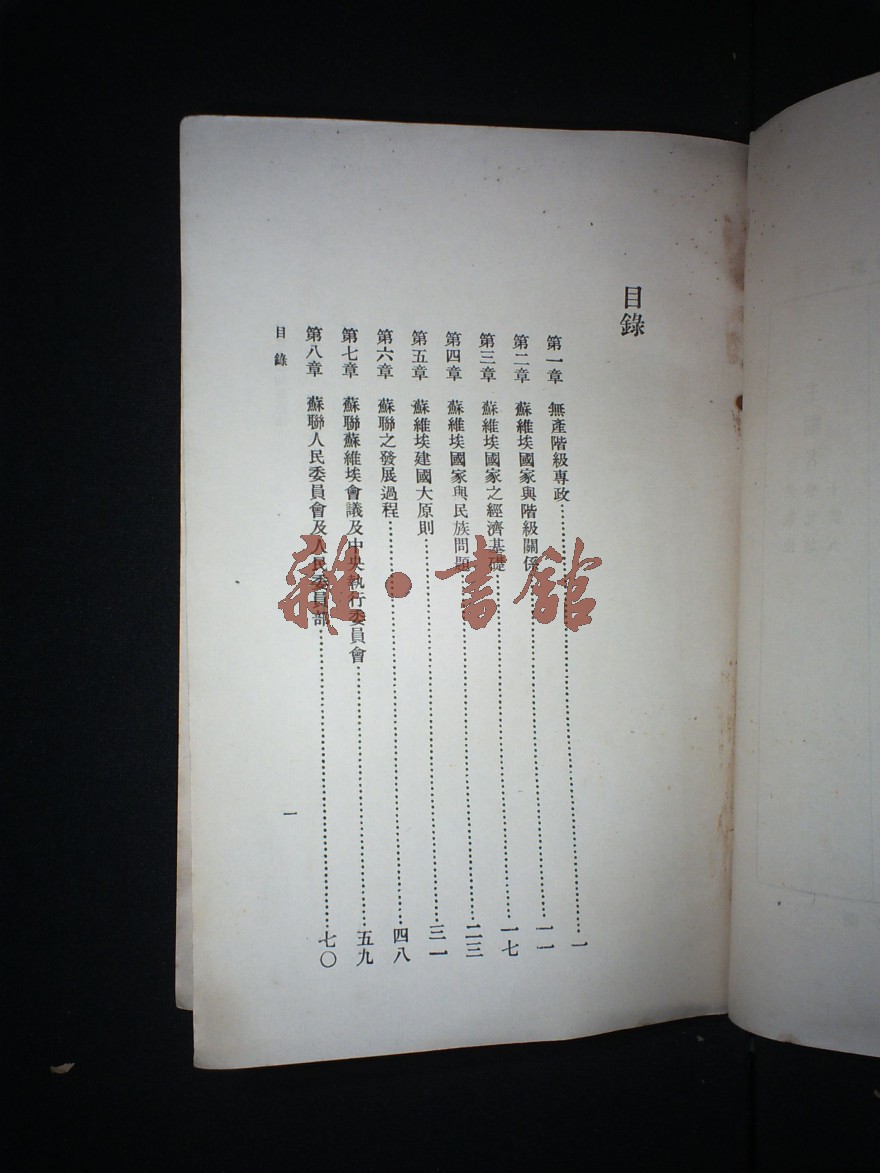 目錄
第一章 無產階級專政…………一
第二章 蘇維埃國家與階級關係…………一一
第三章 蘇維埃國家之經濟基礎…………一七
第四章 蘇維埃國家與民族問題…………二三
第五章 蘇維埃建國大原則…………三一
第六章 蘇聯之發展過程…………四八
第七章 蘇聯蘇維埃會議及中央執行委員會…………五九
第八章 蘇聯人民委員會及人民委員部…………七〇
目錄
一
雜·書館